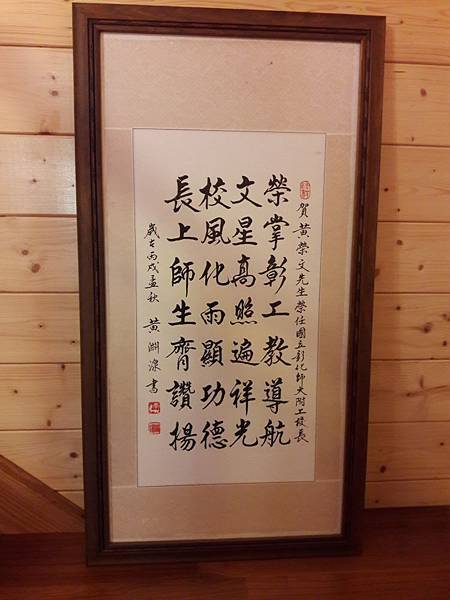 賀黃榮文先生榮任國立彰化師大附工校長
榮掌彰工教導航
文星高照遍祥光
校風化雨顯功德
長上師生齊讚揚
歲在丙戌孟秋 黃淵澡書